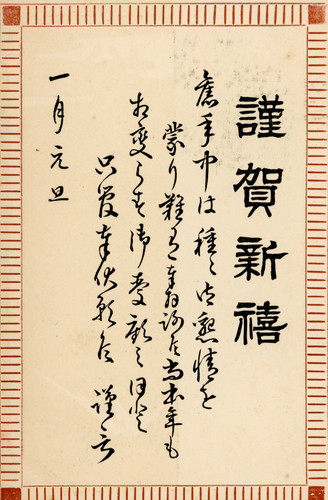 謹賀新禧
舊年中は種々御懇情を
蒙り難有奉謝候尚本年も
相変らず御愛顧之程
只管奉伏願候 謹言
一月元旦